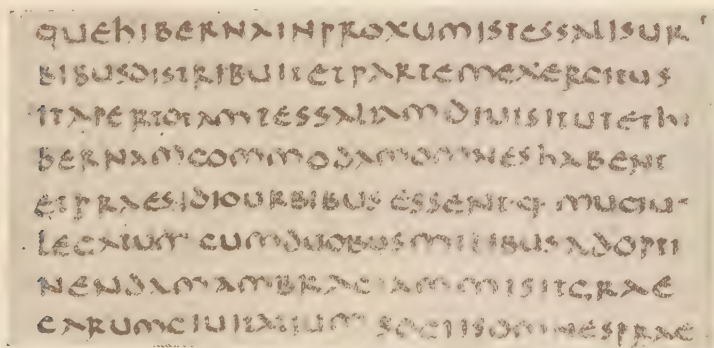 QUEHIBERNAINPROXUMISTESSALISUR
BIBUSDISTRIBUITETPARTEMEXERCITUS
ITAPERTOTAMTESSALIAMDIUISITUTETHI
BERNAMCOMMODAMOMNESHABENT
ETPRAESIDIOURBIBUSESSENTQ·MUCIU
LEGATUMCUMDUOBUSMILIBUSADOPTI
NENDAMAMBRACIAMMISITGRAE
CARUMCIUITATIUMSOCIISOMNESPRAE